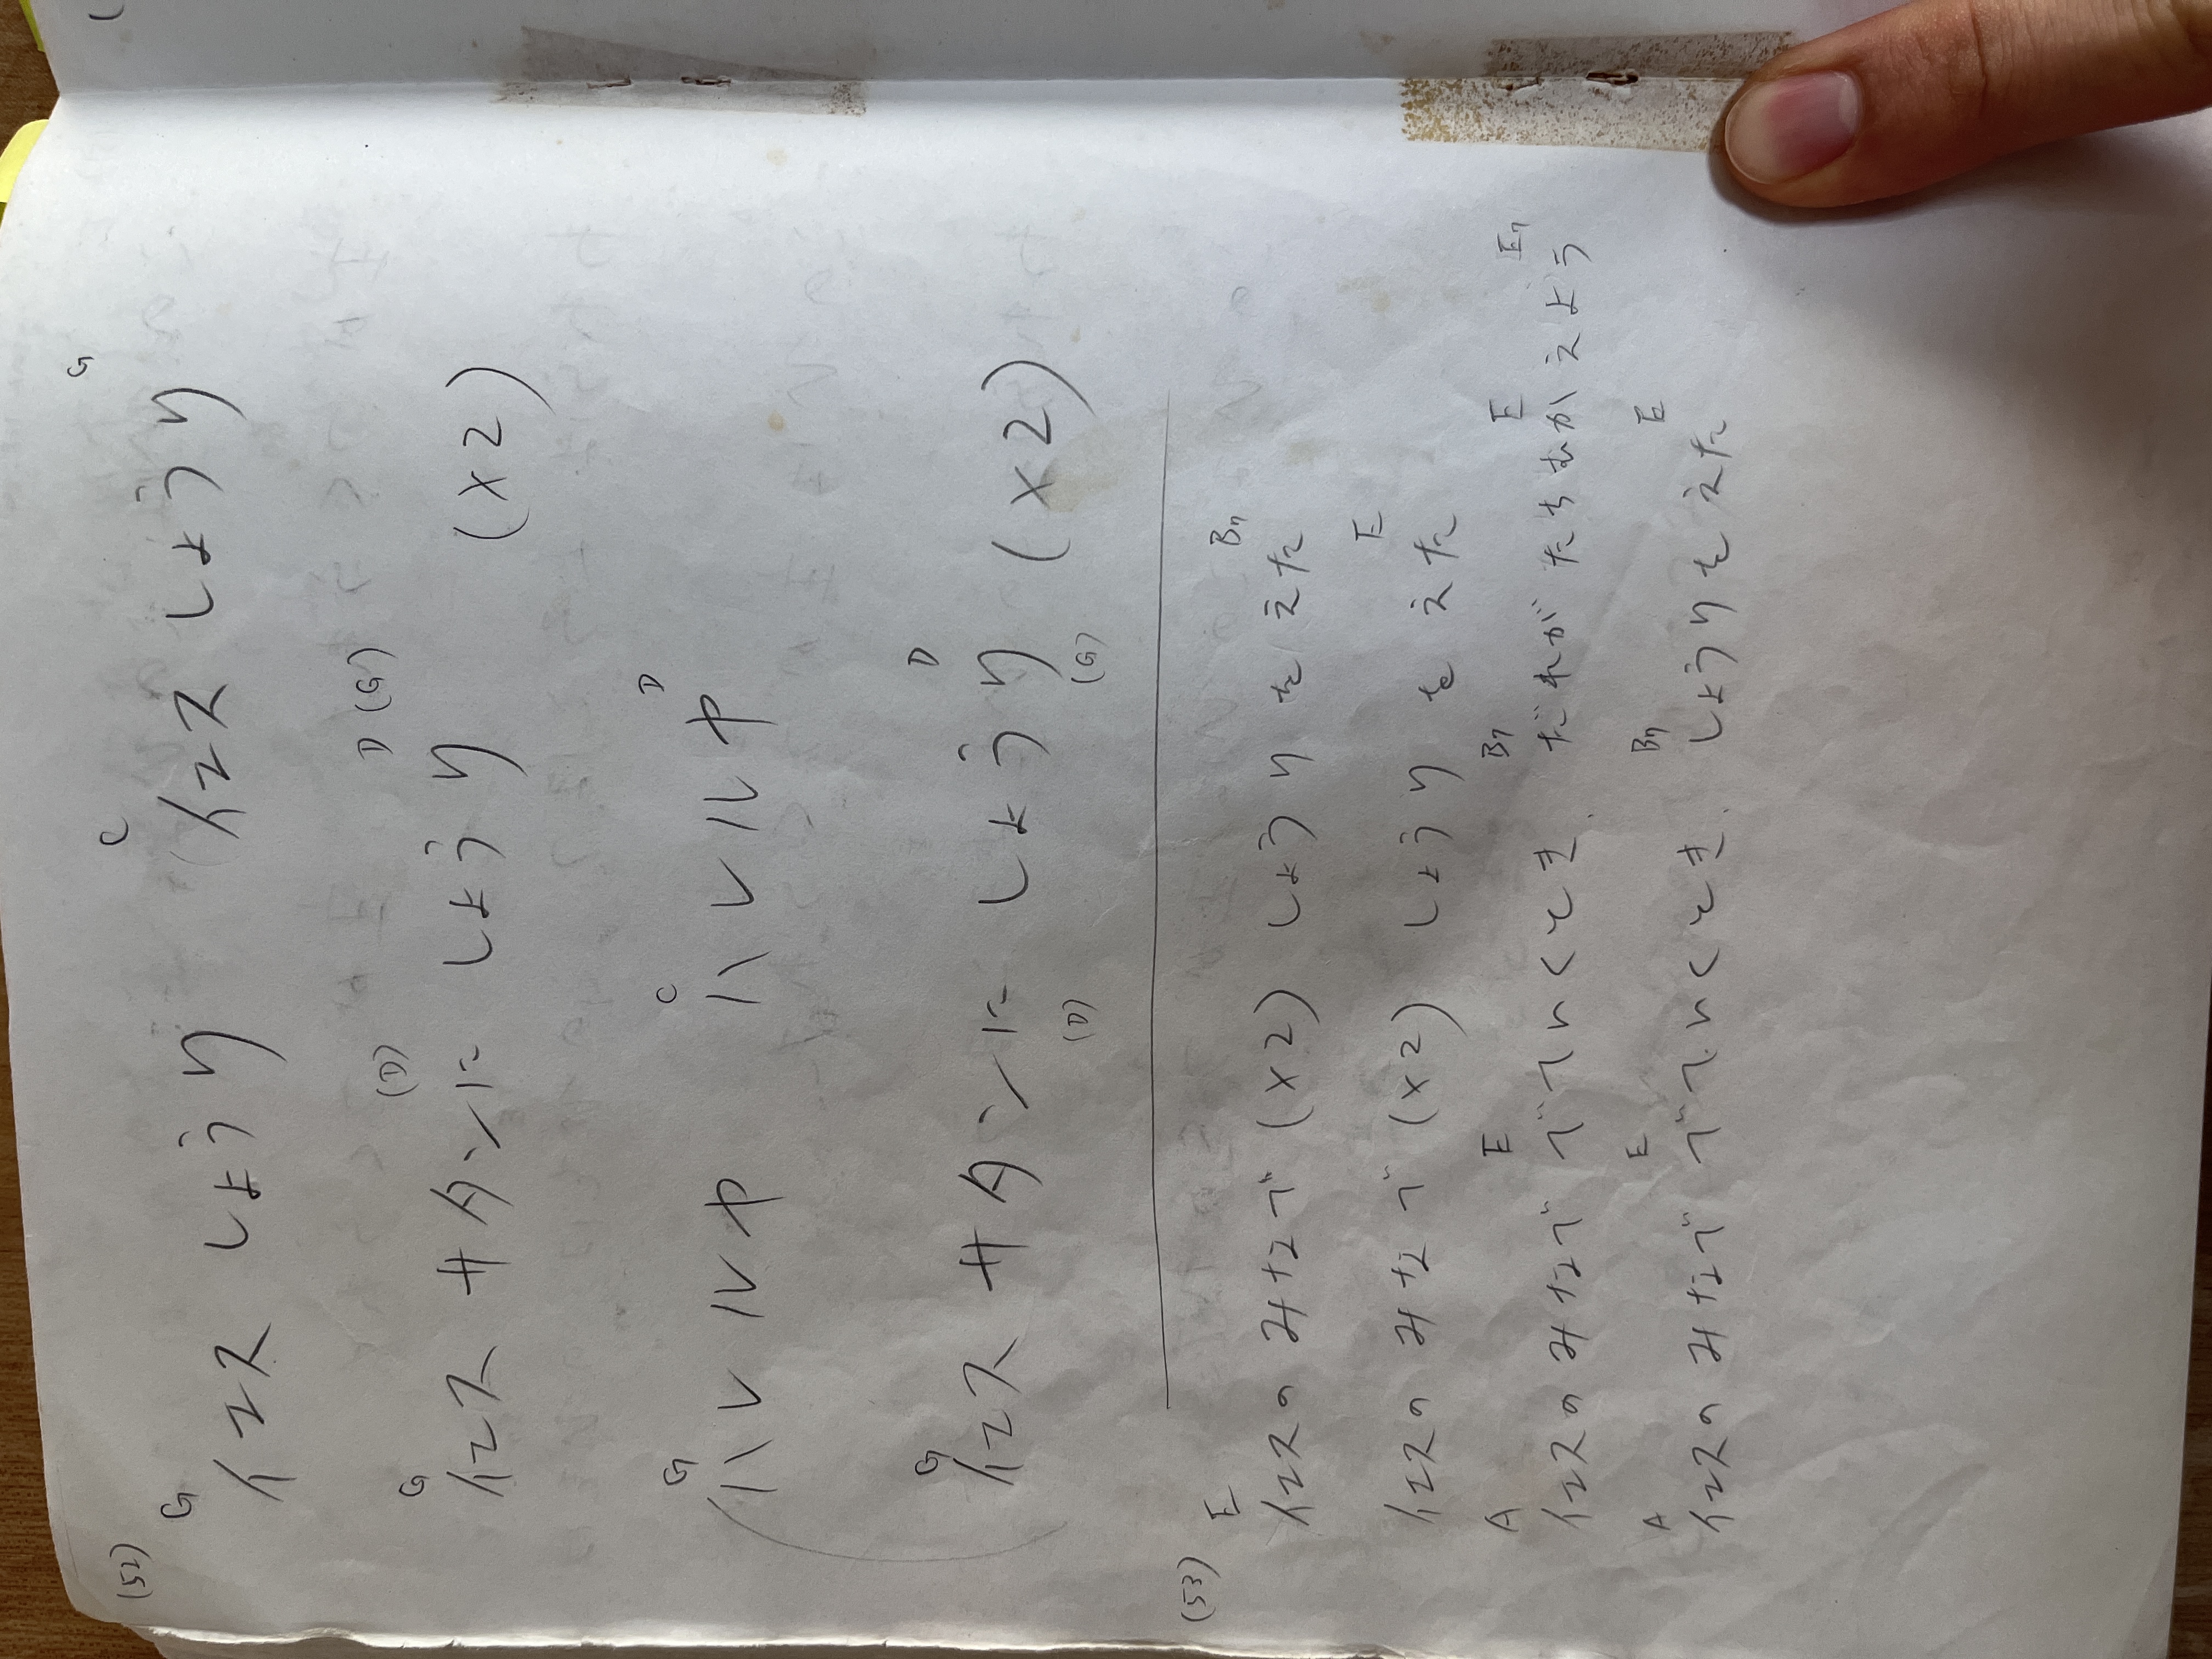 (52)
G C G
イエス しょうり イエス しょうり
G (D) D (G)
イエス サタンに しょうり (x2)
G C D
ハレルヤ ハレルヤ
G D
イエス サタンに しょうり (x2)
(D) (G)
(53)
E B7
イエスのみなで (x2) しょうりをえた
E
イエスのみなで (x2) しょうりをえた
A E B7 E E7
イエスのみなで でていくとき だれがたちむかえよう
A E B7 E
イエスのみなで でていくとき しょうりをえた